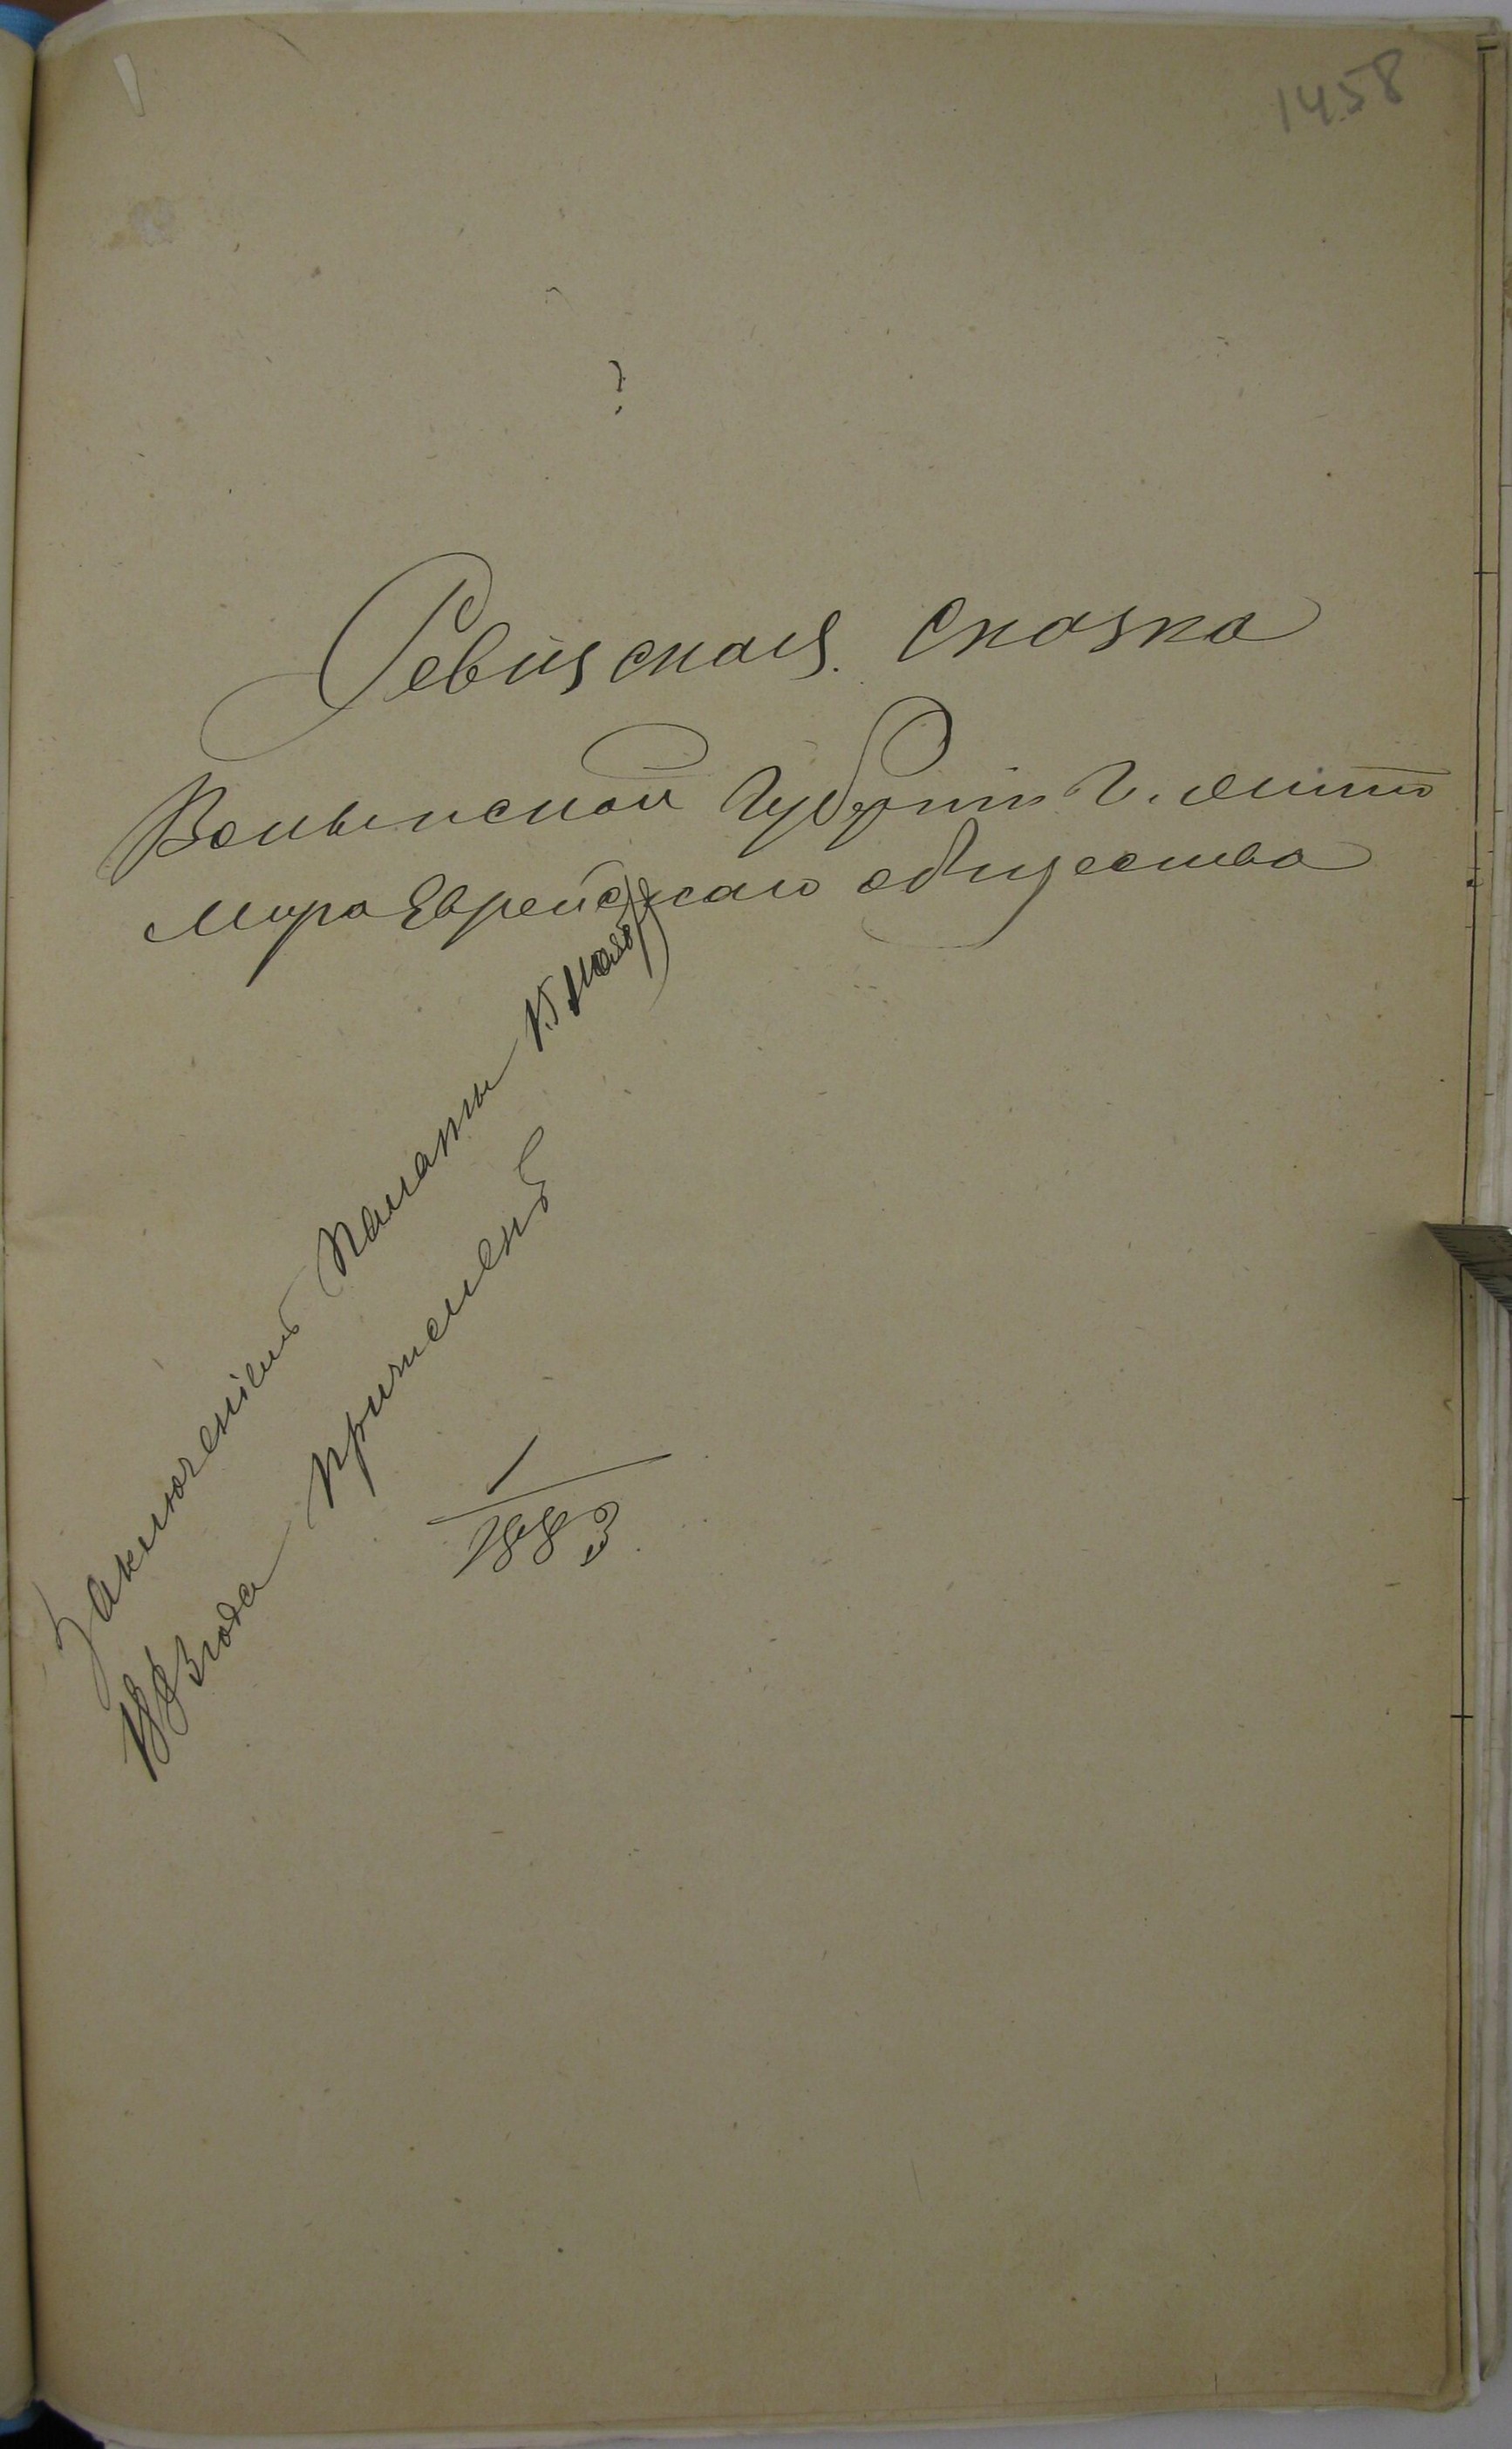 1458
?
Ревизская Сказка
Волынской Губерніи г. Жито
мира Еврейскаго общества
Заключеніемъ Палаты 15 Нояб
1883 года причисленъ
1
1883